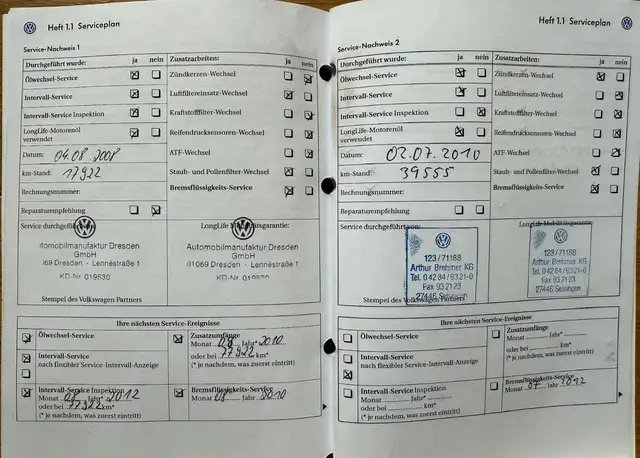 Heft 1.1 Serviceplan
Service-Nachweis 1
Durchgeführt wurde: ja nein
Ölwechsel-Service
Intervall-Service
Intervall-Service Inspektion
LongLife-Motorenöl
verwendet
Datum: 04.08 2008
km-Stand: 17922
Rechnungsnummer:
Reparaturempfehlung
Zusatzarbeiten: ja nein
Zündkerzen-Wechsel
Luftfiltereinsatz-Wechsel
Kraftstofffilter-Wechsel
Reifendrucksensoren-Wechsel
ATF-Wechsel
Staub- und Pollenfilter-Wechsel
Bremsflüssigkeits-Service
Service durchgeführt von:
utomobilmanufaktur Dresden
GmbH
1069 Dresden - Lennéstraße 1
KD-Nr. 019530
LongLife Mobilitätsgarantie:
Automobilmanufaktur Dresden
GmbH
01069 Dresden - Lennéstraße 1
KD-Nr.
Stempel des Volkswagen Partners
Ihre nächsten Service-Ereignisse
Ölwechsel-Service
Intervall-Service
nach flexibler Service-Intervall-Anzeige
Intervall-Service Inspektion
Monat 08 Jahr* 2012
oder bei 77922 km*
(* je nachdem, was zuerst eintritt)
Zusatzumfänge
Monat 08 Jahr* 2010
oder bei 77922 km*
(* je nachdem, was zuerst eintritt)
Bremsflüssigkeits-Service
Monat 08 Jahr 2010
Heft 1.1 Serviceplan
Service-Nachweis 2
Durchgeführt wurde: ja nein
Ölwechsel-Service
Intervall-Service
Intervall-Service Inspektion
LongLife-Motorenöl
verwendet
Datum: 02.07.2010
km-Stand: 39555
Rechnungsnummer:
Reparaturempfehlung
Zusatzarbeiten: ja nein
Zündkerzen-Wechsel
Luftfiltereinsatz-Wechsel
Kraftstofffilter-Wechsel
Reifendrucksensoren-Wechsel
ATF-Wechsel
Staub- und Pollenfilter-Wechsel
Bremsflüssigkeits-Service
Service durchgeführt von:
123/71188
Arthur Brehmer KG
Tel. 0 42 84 / 93 21-0
Fax 93 21 23
27446 Selsingen
LongLife Mobilitätsgarantie:
123/71188
Arthur Brehmer KG
Tel. 0 42 84 / 93 21-0
Fax 93 21 23
27446 Selsingen
Stempel des Volkswagen Partners
Ihre nächsten Service-Ereignisse
Ölwechsel-Service
Intervall-Service
nach flexibler Service-Intervall-Anzeige
Intervall-Service Inspektion
Monat Jahr*
oder bei km*
(* je nachdem, was zuerst eintritt)
Zusatzumfänge
Monat Jahr*
oder bei km*
(* je nachdem, was zuerst eintritt)
Bremsflüssigkeits-Service
Monat 07 Jahr 2012